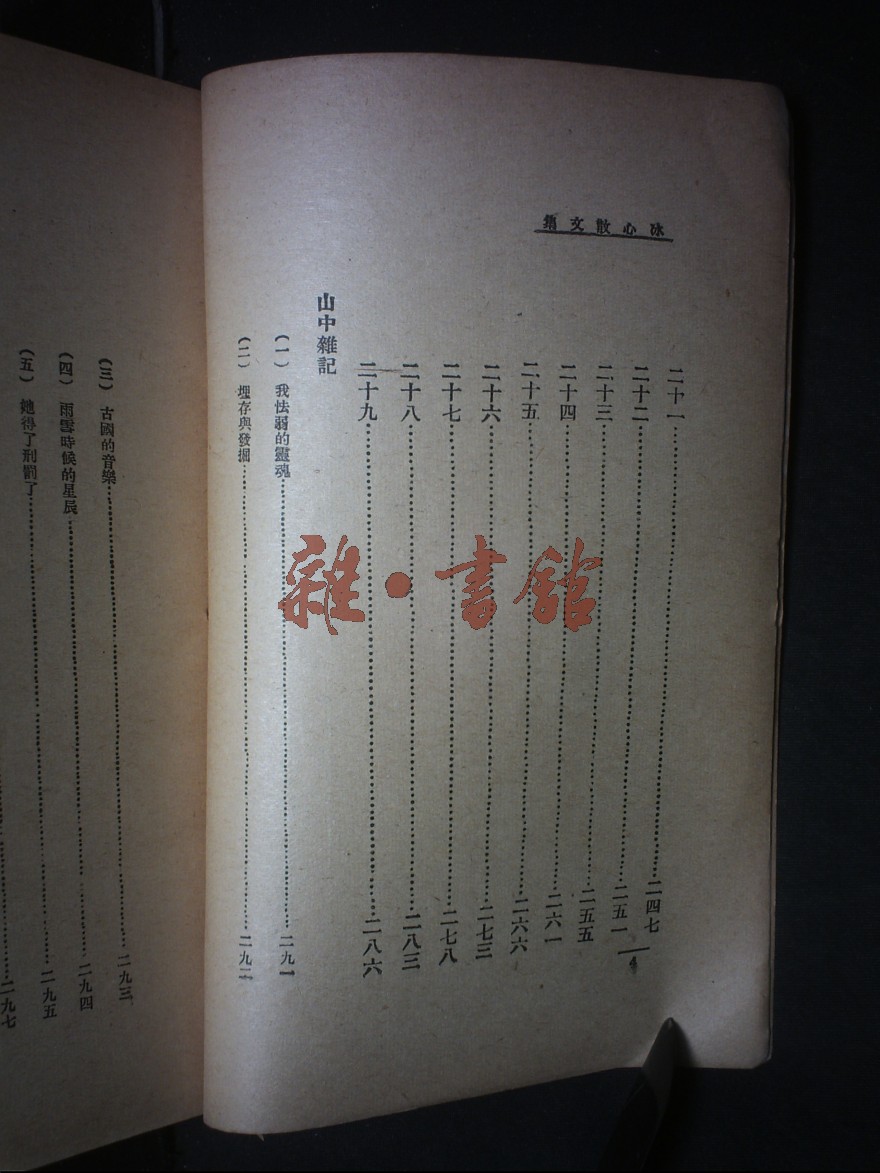 冰心散文集
二十一……二四七
二十二……二五一
二十三……二五五
二十四……二六一
二十五……二六六
二十六……二七三
二十七……二七八
二十八……二八三
二十九……二八六
山中雜記
(一) 我怯弱的靈魂……二九一
(二) 埋存與發掘……二九二
4
(三) 古國的音樂……二九三
(四) 雨雪時候的星辰……二九四
(五) 她得了刑罰了……二九五
二九七
雜·書館